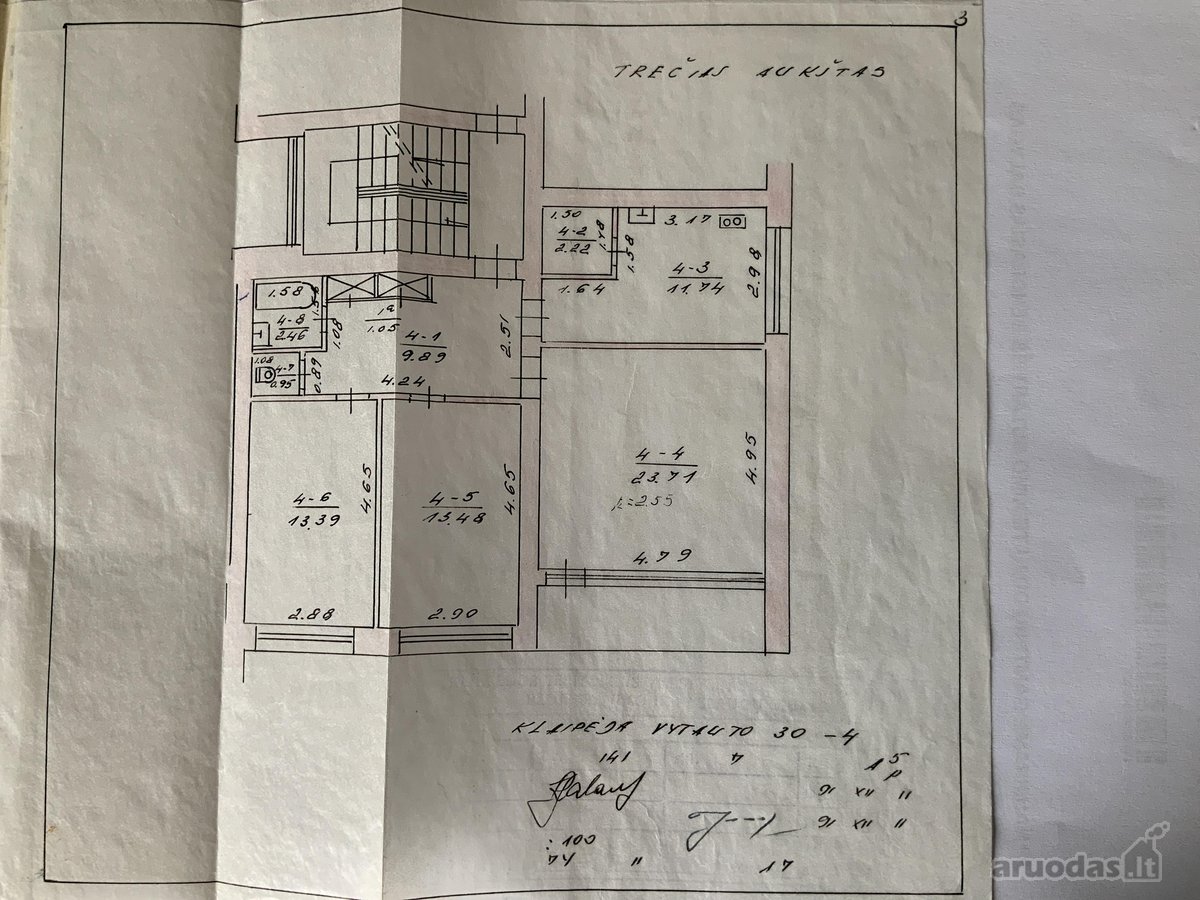 3
TREČIAS AUKŠTAS
1.50
4-2
2.22
1.48
1.58
3.17
4-3
11.74
2.98
1.64
1.58
4-8
2.46
1.08
1a
1.05
4-1
9.89
2.51
1.08
4-7
0.95
0.89
4.24
4-4
23.71
h=2.55
4.95
4.79
4-6
13.39
4.65
2.88
4-5
13.48
4.65
2.90
KLAIPĖDA VYTAUTO 30 -4
141 7 15
:100
74 " 17
aruodas.lt